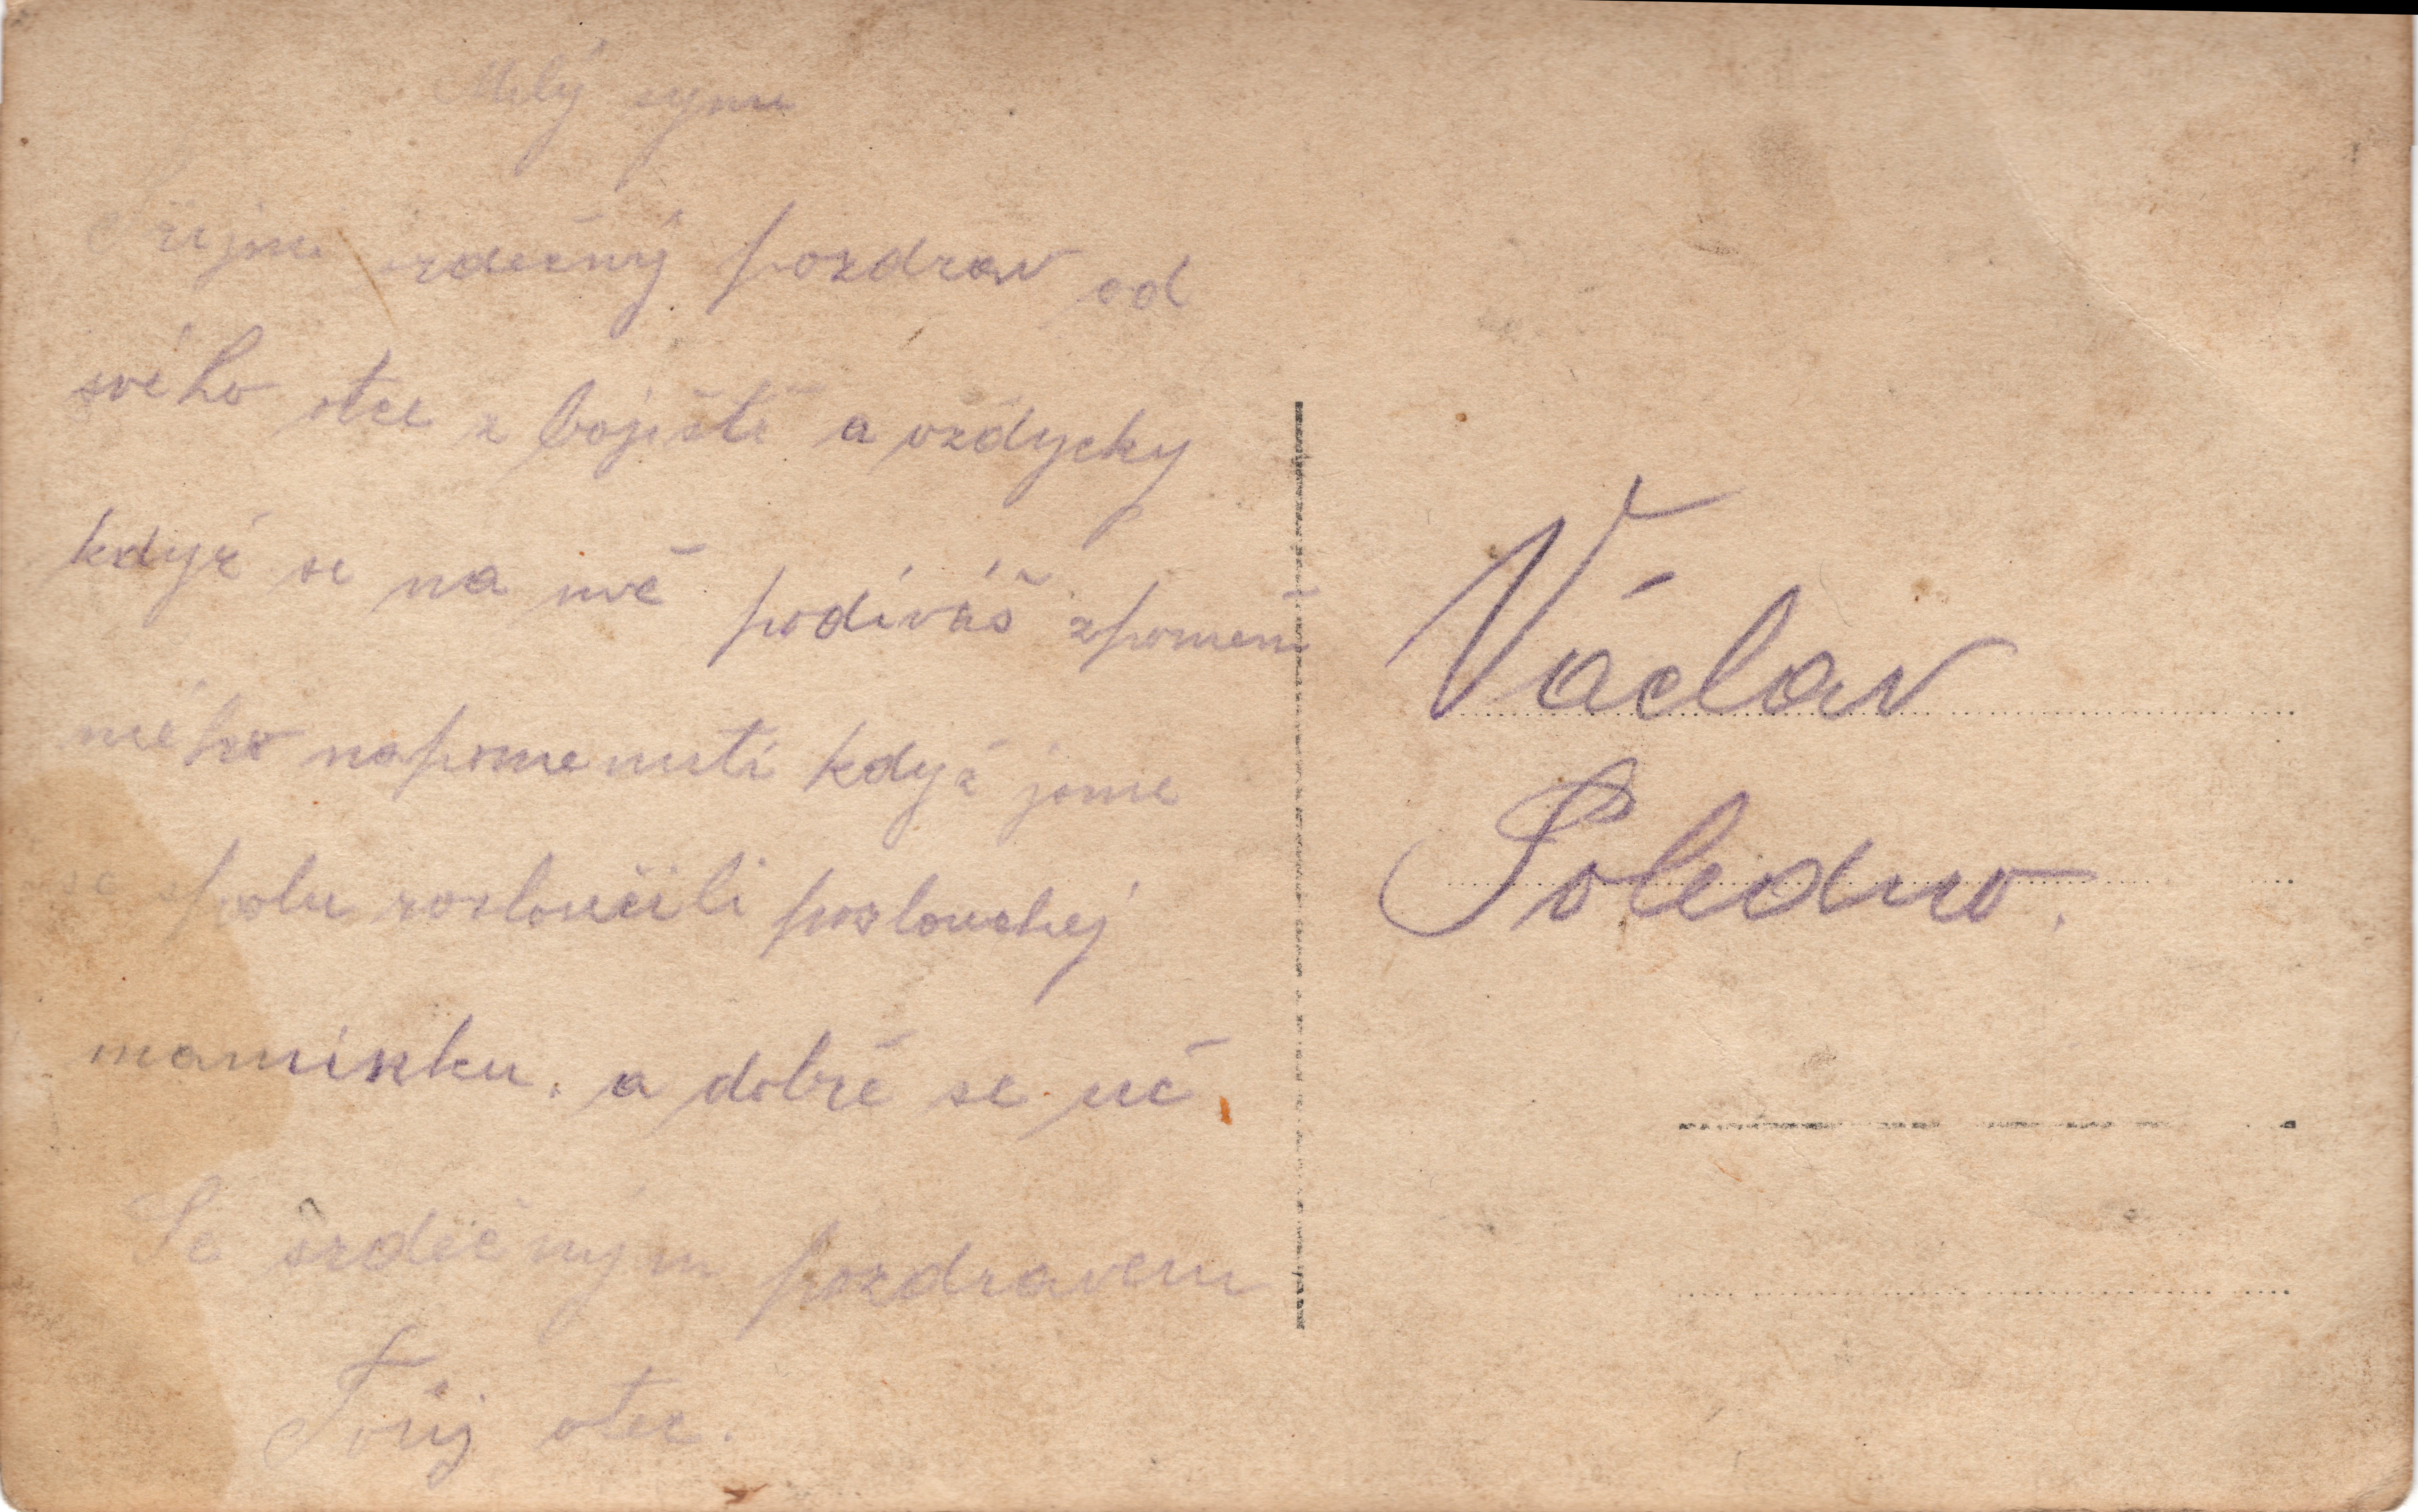 Milý synu
Přijmi srdečný pozdrav od
svého otce z bojiště a vždycky
když se na mě podíváš zpomeň
mého napomenutí když jsme
se spolu rozloučili poslouchej
maminku. a dobře se uč.
Se srdečným pozdravem
Tvůj otec.
Václav
Poledno.